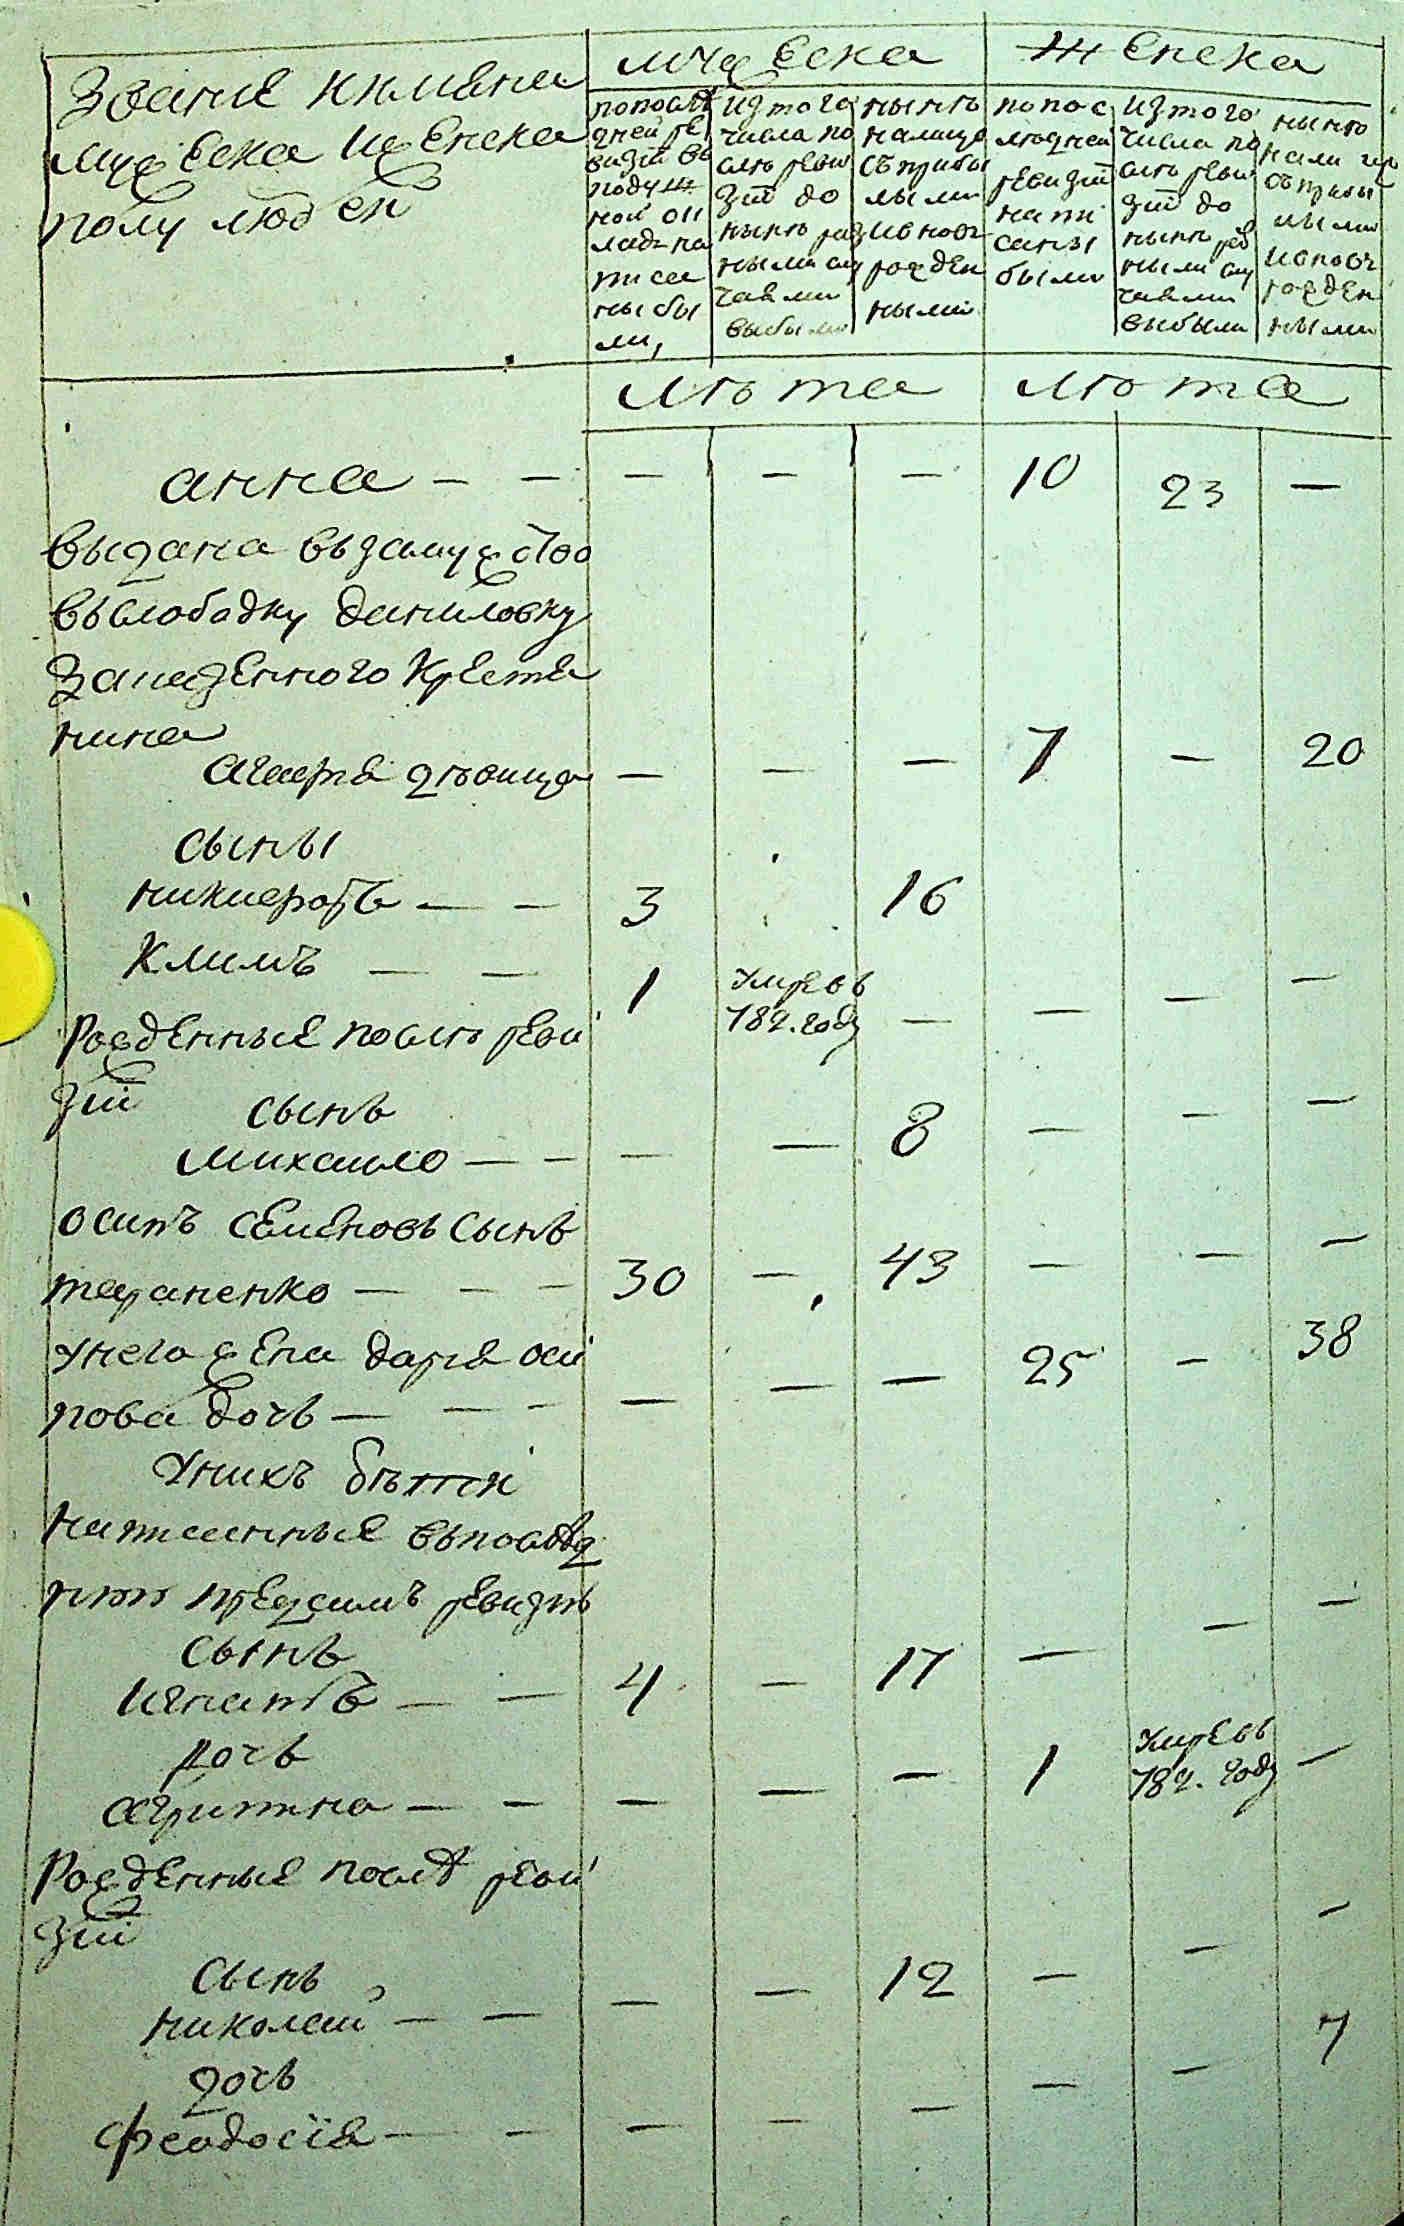 Званiе и имѣна
мужеска и женска
полу людей
мужеска
женска
по послѣ
дней ре
визiи въ
подуш
ной ок
ладъ на
писа
ны бы
ли,
изтого
числа по
слѣ реви
зiи до
нынѣ раз
ными слу
чаями
выбыли
нынѣ
налицо
съ прибы
лыми
и внов
рожден
ными
по пос
лѣдней
ревизiи
напи
саны
были
изтого
числа по
слѣ реви
зiи до
нынѣ раз
ными слу
чаями
выбыли
нынѣ
нали цо
съ прибы
лыми
и вновь
рожден
ными
лѣта
лѣта
анна — — — — — 10 23 —
выдана взамужство
вслободку даниловку
за казенного крестя
нина
агафiя дѣвица — — — 7 — 20
сыны
никифоръ — — 3 16
климъ — — 1 умре въ — — — —
782. году
Рожденные послѣ реви
зiи сынъ
михаило — — — — 8 — — —
осипъ семеновъ сынъ
тараненко — — — 30 — 43 — — —
унего жена дарiя оси
пова дочь — — — — — — 25 — 38
уних дѣти
написанные въпослѣд
нѣи предсимъ ревизiѣ
сынъ
игнатъ — — 4 — 17 — — —
дочь
агрипина — — — — — 1 умре въ —
782. году
Рожденные послѣ реви
зiи
сынъ
николай — — — — 12 — — —
дочь
феодосiя — — — — — — — 7